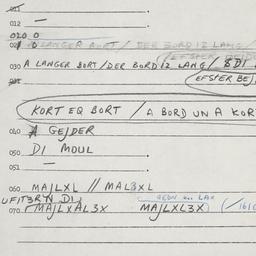 011
012 —
020 O
021 A LANGER BORT / DER BORD IZ LANG /
030 A LANGER BORT / DER BORD IZ LANG / BDI
031
KORT EQ BORT / A BORD UN A KOR
040 A GEJDER
050 DI MOUL
051 —
060 MAJLXL // MALBXL
UFIT3RN DI
070 MAJLXAL3X MAJLXL3X (/161